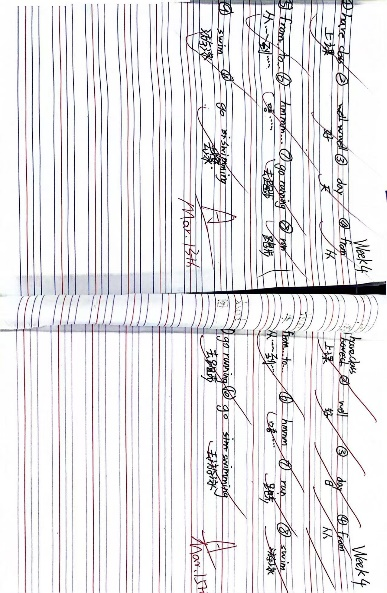 Week 4
① have class ② well well ③ day ④ from
上课 好 天 从
⑤ from...to... ⑥ hmmm... ⑦ go running ⑧ run
从...到... 嗯... 去跑步 跑步
⑨ swim ⑩ go swimming
游泳 去游泳
A
Mar.13th
Week 4
② well ③ day ④ from
上课 好 日 从
from...to... ⑥ hmmm ⑦ run ⑧ swim
从...到... 嗯... 跑步 游泳
go running ⑩ go swimming
去跑步 去游泳
A
Mar.15th